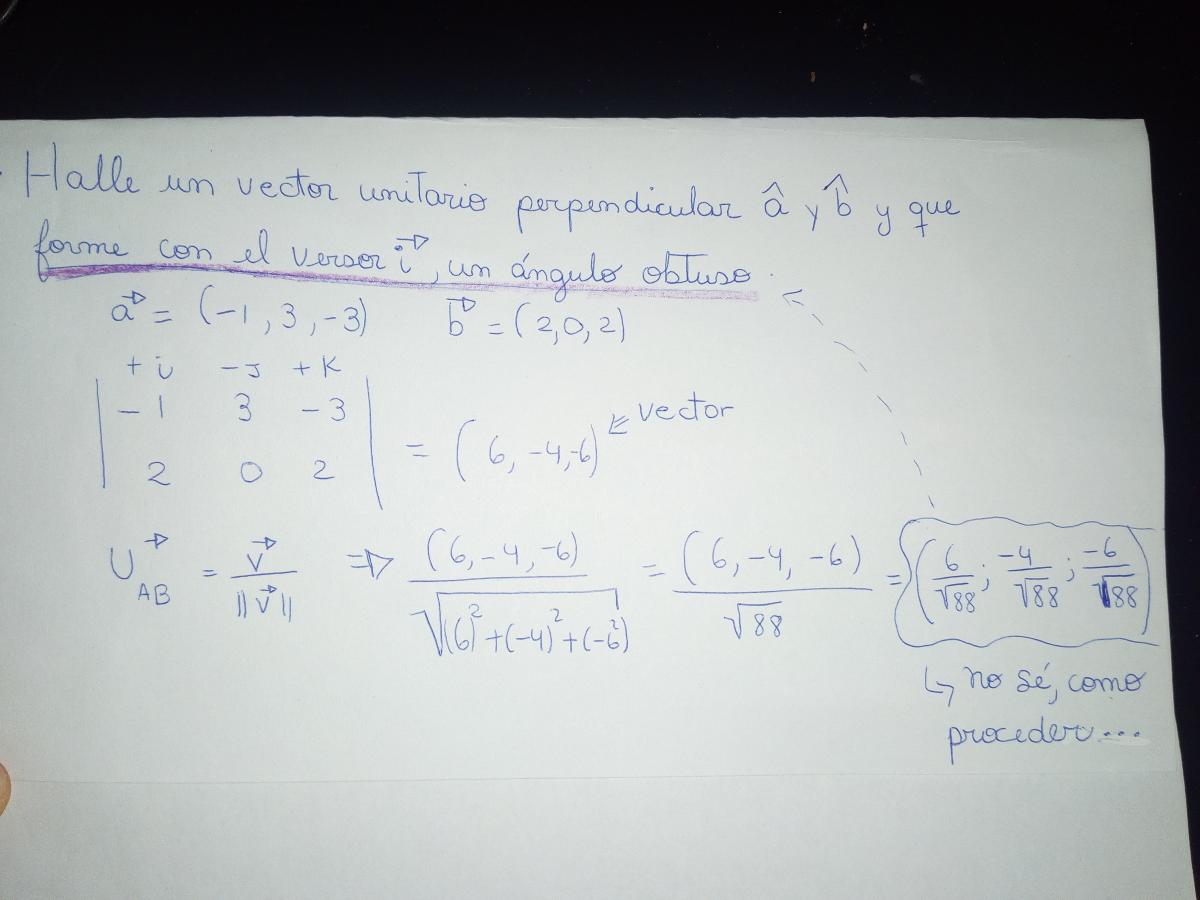 Halle un vector unitario perpendicular â y b̂ y que
forme con el versor i⃗, un ángulo obtuso.
a⃗ = (-1, 3, -3)    b⃗ = (2,0,2)
+i  -J  +K
| -1  3  -3 |
| 2  0  2 | = (6, -4,-6) ⇐ vector
U⃗_AB = v⃗ / ||v⃗|| ⇒ (6, -4, -6) / √((6)²+(-4)²+(-6²) = (6, -4, -6) / √88 = (6/√88 ; -4/√88 ; -6/√88)
↳ no sé, como
proceder...